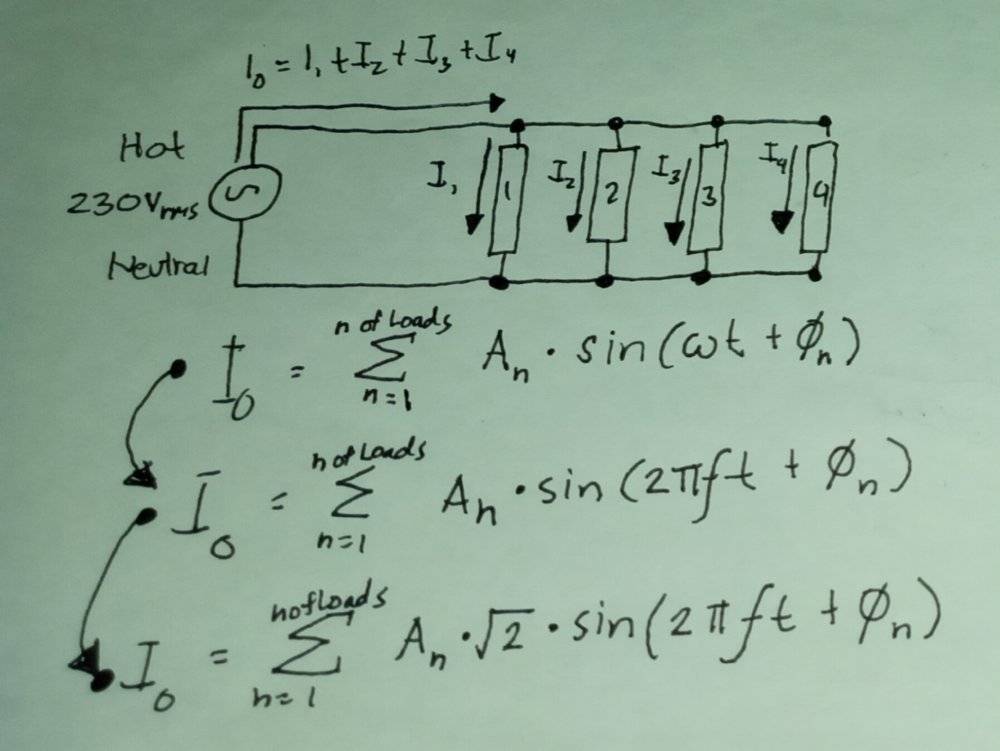 I₀ = I₁ + I₂ + I₃ + I₄
Hot
230Vrms
Neutral
I₁ 1 I₂ 2 I₃ 3 I₄ 4
I₀ = n of Loads ∑ n=1 Aₙ · sin(ωt + ϕₙ)
I₀ = n of Loads ∑ n=1 Aₙ · sin(2πft + ϕₙ)
I₀ = n of Loads ∑ n=1 Aₙ · √2 · sin(2πft + ϕₙ)